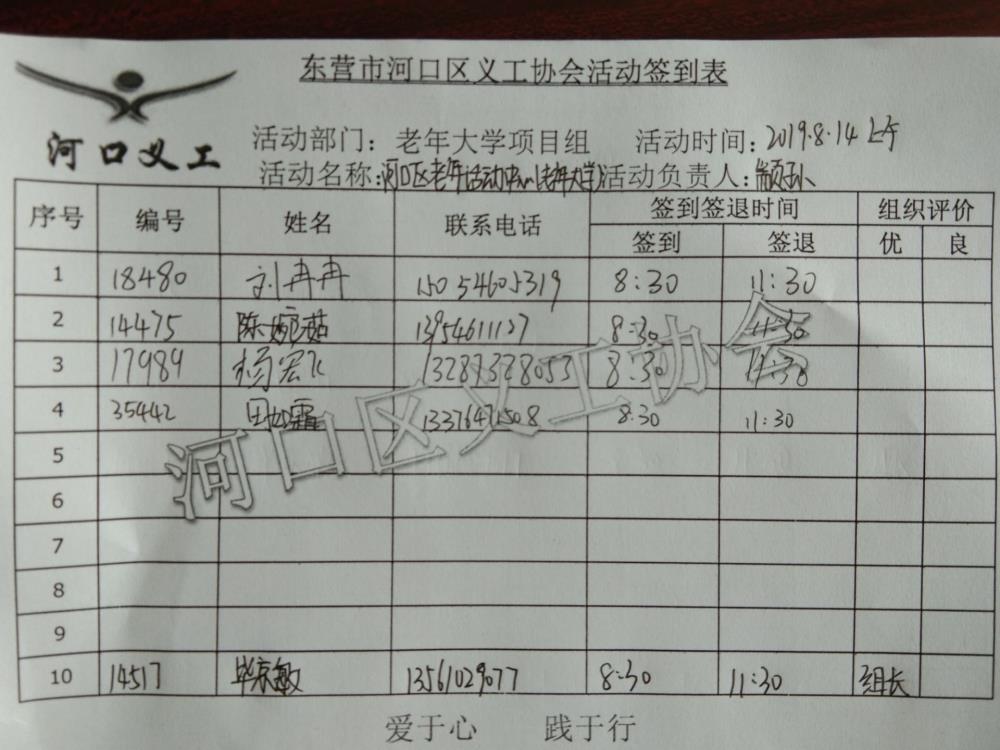 东营市河口区义工协会活动签到表
河口义工
活动部门：老年大学项目组 活动时间：2019.8.14 上午
活动名称：河口区老年活动中心(老年大学) 活动负责人：
序号 编号 姓名 联系电话 签到签退时间 组织评价
签到 签退 优 良
1 18480 刘冉冉 15054605319 8:30 11:30
2 14475 陈婉茹 13954611127 8:30 11:30
3 17989 杨宏飞 13287328053 8:30 11:30
4 35442 田如霜 8:30 11:30
5
6
7
8
9
10 14517 毕京敏 13561029077 8:30 11:30 组长
爱于心 践于行
河口区义工协会